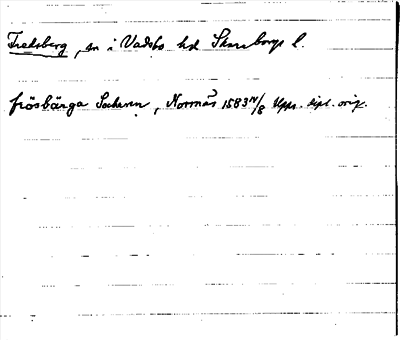 Fredsberg, sn i Vadsbo hd Skaraborgs l.
frösbärga Sochenn, Normäs 1583 14/8 Upps. dipl. orig.